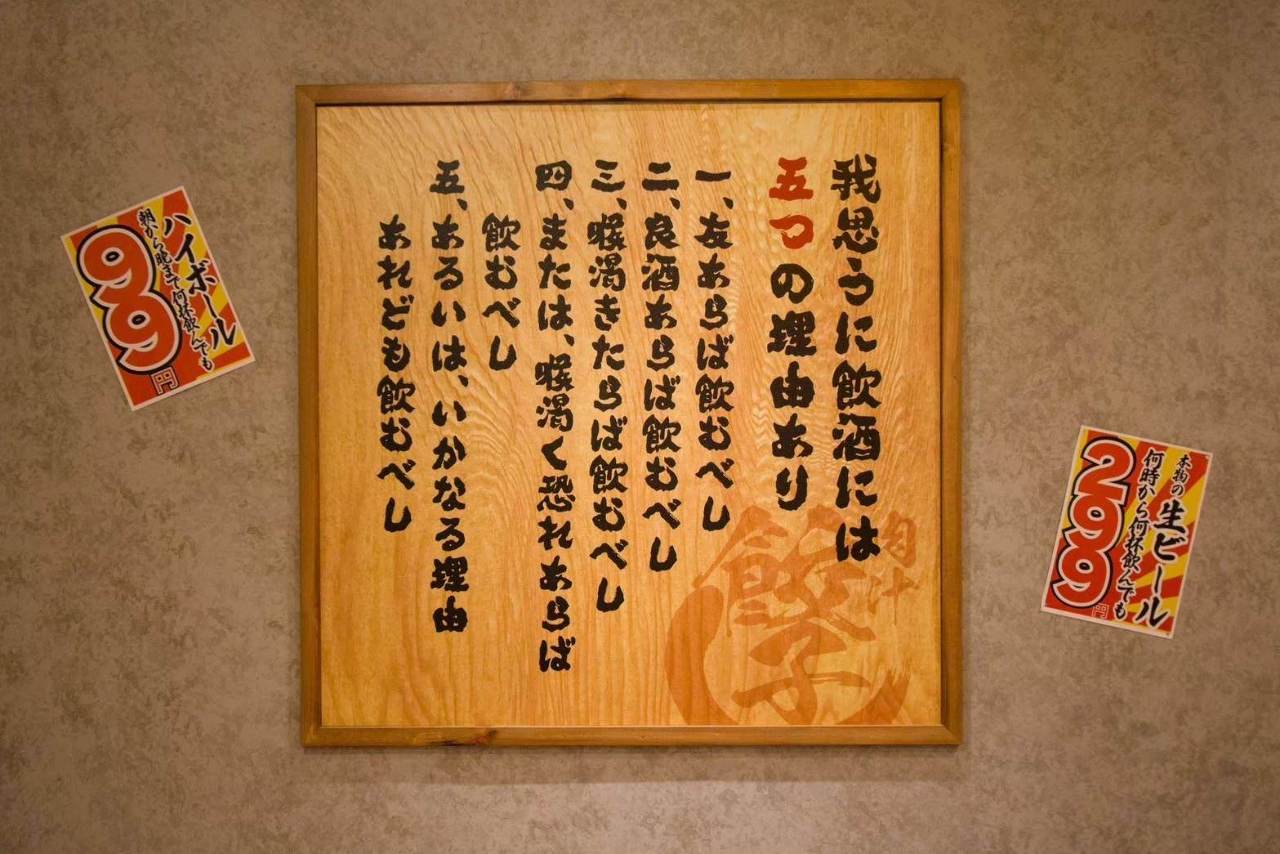 我思うに飲酒には
五つの理由あり
一、友あらば飲むべし
二、良酒あらば飲むべし
三、喉渇きたらば飲むべし
四、または、喉渇く恐れあらば
飲むべし
五、あるいは、いかなる理由
あれども飲むべし
肉汁
餃子
ハイボール
朝から晩まで何杯飲んでも
99円
本物の生ビール
何時から何杯飲んでも
299円